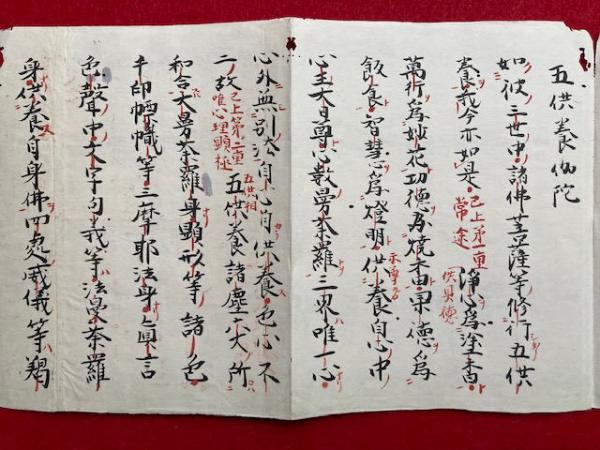 五供養伽陀
如彼三世中諸佛菩薩等修行五供
養我今亦如是 已上第一重常途 供具德 淨心爲塗香
萬行爲妙花功德爲燒香果德爲
飯食智慧爲燈明供養自心中
心主大日尊心數曼荼羅三界唯一心
心外無別法自心自供養色心不
二故 已上第二重唯心理顕極 五供相 五供養諸塵六大所
和合大曼荼羅身顯形等諸色
手印幖幟等三摩耶法身真言
色聲中文字句義等法曼荼羅
身供養自身佛四處威儀等羯